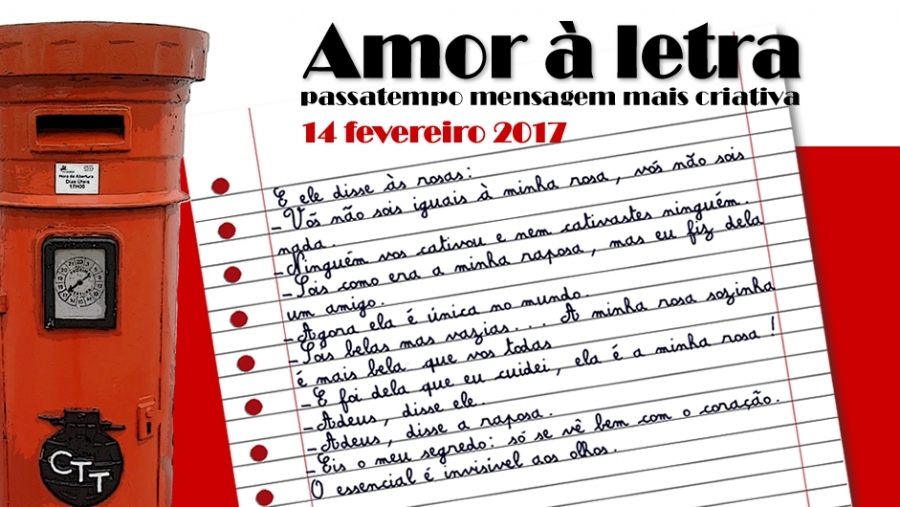 Amor à letra
passatempo mensagem mais criativa
14 fevereiro 2017
E ele disse às rosas:
- Vós não sois iguais à minha rosa, vós não sois
nada.
- Ninguém vos cativou e nem cativastes ninguém.
- Sois como era a minha raposa, mas eu fiz dela
um amigo.
- Agora ela é única no mundo.
- Sois belas mas vazias... A minha rosa sozinha
é mais bela que vos todas
- E foi dela que eu cuidei, ela é a minha rosa!
- Adeus, disse ele.
- Adeus, disse a raposa.
- Eis o meu segredo: só se vê bem com o coração.
O essencial é invisível aos olhos.
Hora de Abertura
Dias Úteis
17H00
CTT